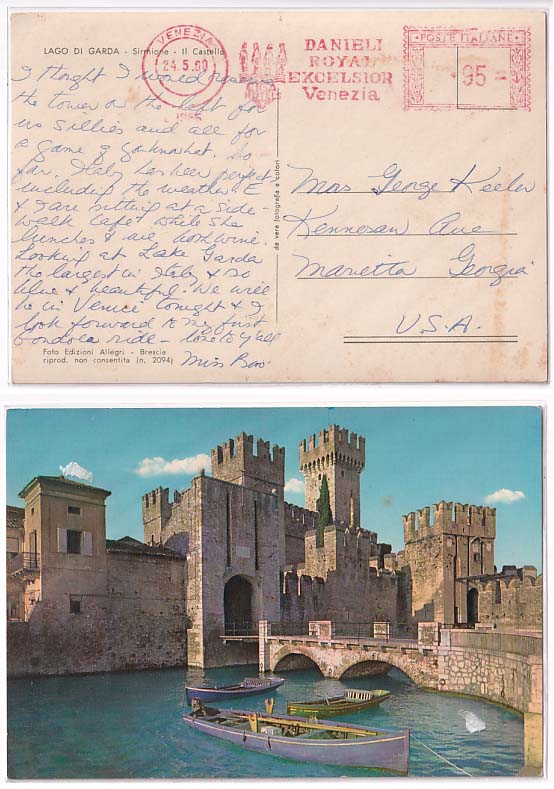 LAGO DI GARDA - Sirmione - Il Castello
VENEZIA
24.5.60
DANIELI
ROYAL
EXCELSIOR
Venezia
POSTE ITALIANE
95
I thought I would reserve
the tower on the left for
us sillies and all for
a game of youknowhat. So
far, Italy has been perfect,
including the weather. E
& I are sitting at a side-
walk cafe while she
lunches & we both wine.
Looking at Lake Garda
the largest in Italy & so
blue & beautiful. We will
be in Venice tonight & I
look forward to my first
Gondola ride - love to y'all
Miss
da vera fotografia a colori
Mrs George Keeler
Kennesaw Ave
Marietta Georgia
U.S.A.
Foto Edizioni Allegri - Brescia
riprod. non consentita (n. 2094)